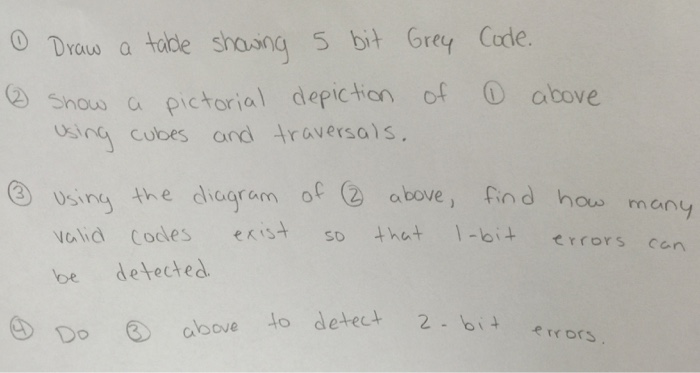 ① Draw a table showing 5 bit Grey Code.
② Show a pictorial depiction of ① above
using cubes and traversals.
③ Using the diagram of ② above, find how many
valid codes exist so that 1-bit errors can
be detected.
④ Do ③ above to detect 2-bit errors.